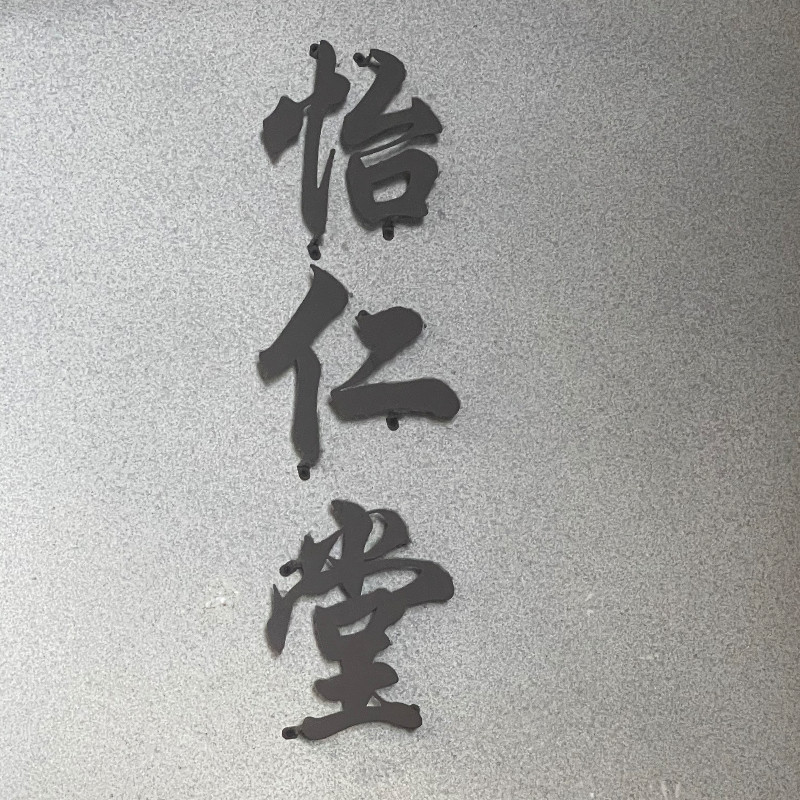 怡仁堂